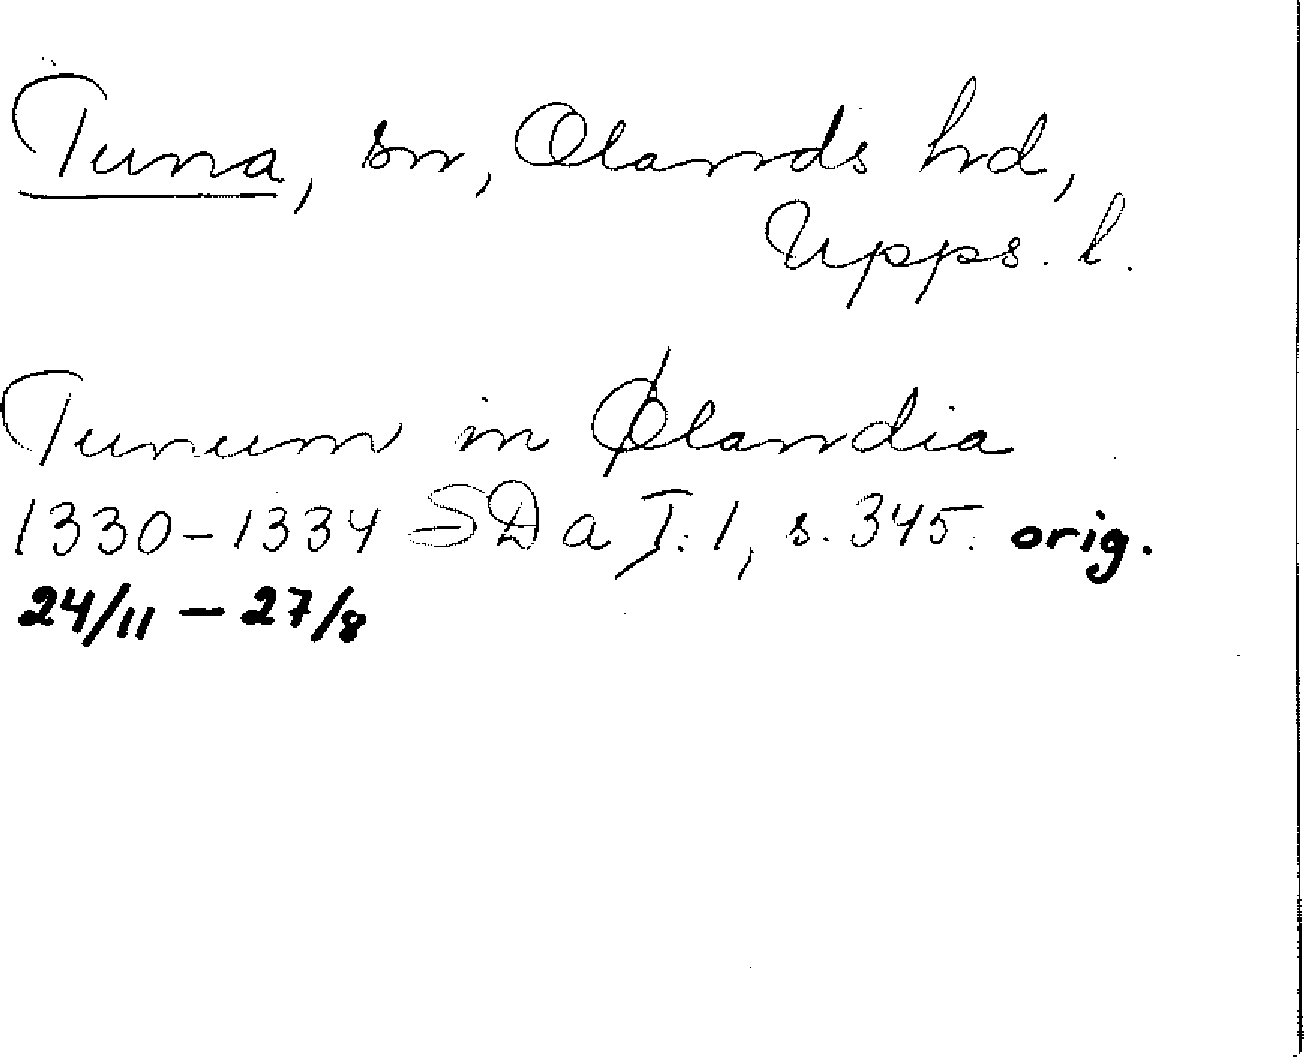 Tuna, sn, Olands hd,
Upps. l.
Tunum in Ølandia
1330-1334 SDa I:1, s. 345. orig.
24/11 - 27/8